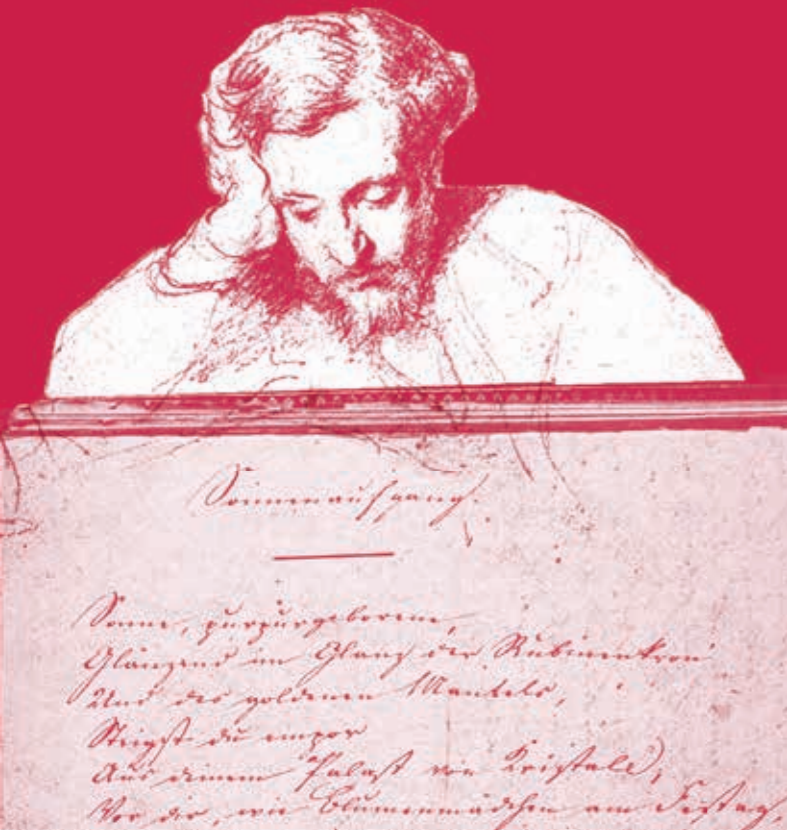 Sonnenaufgang.
Sonne, purpurgeborene,
Glänzend im Glanz der Rubinenkron
Und des goldenen Mantels,
Steigst du empor
Aus deinem Palast von Kristall,
Vor dir, wie Blumenmädchen am Festtag,